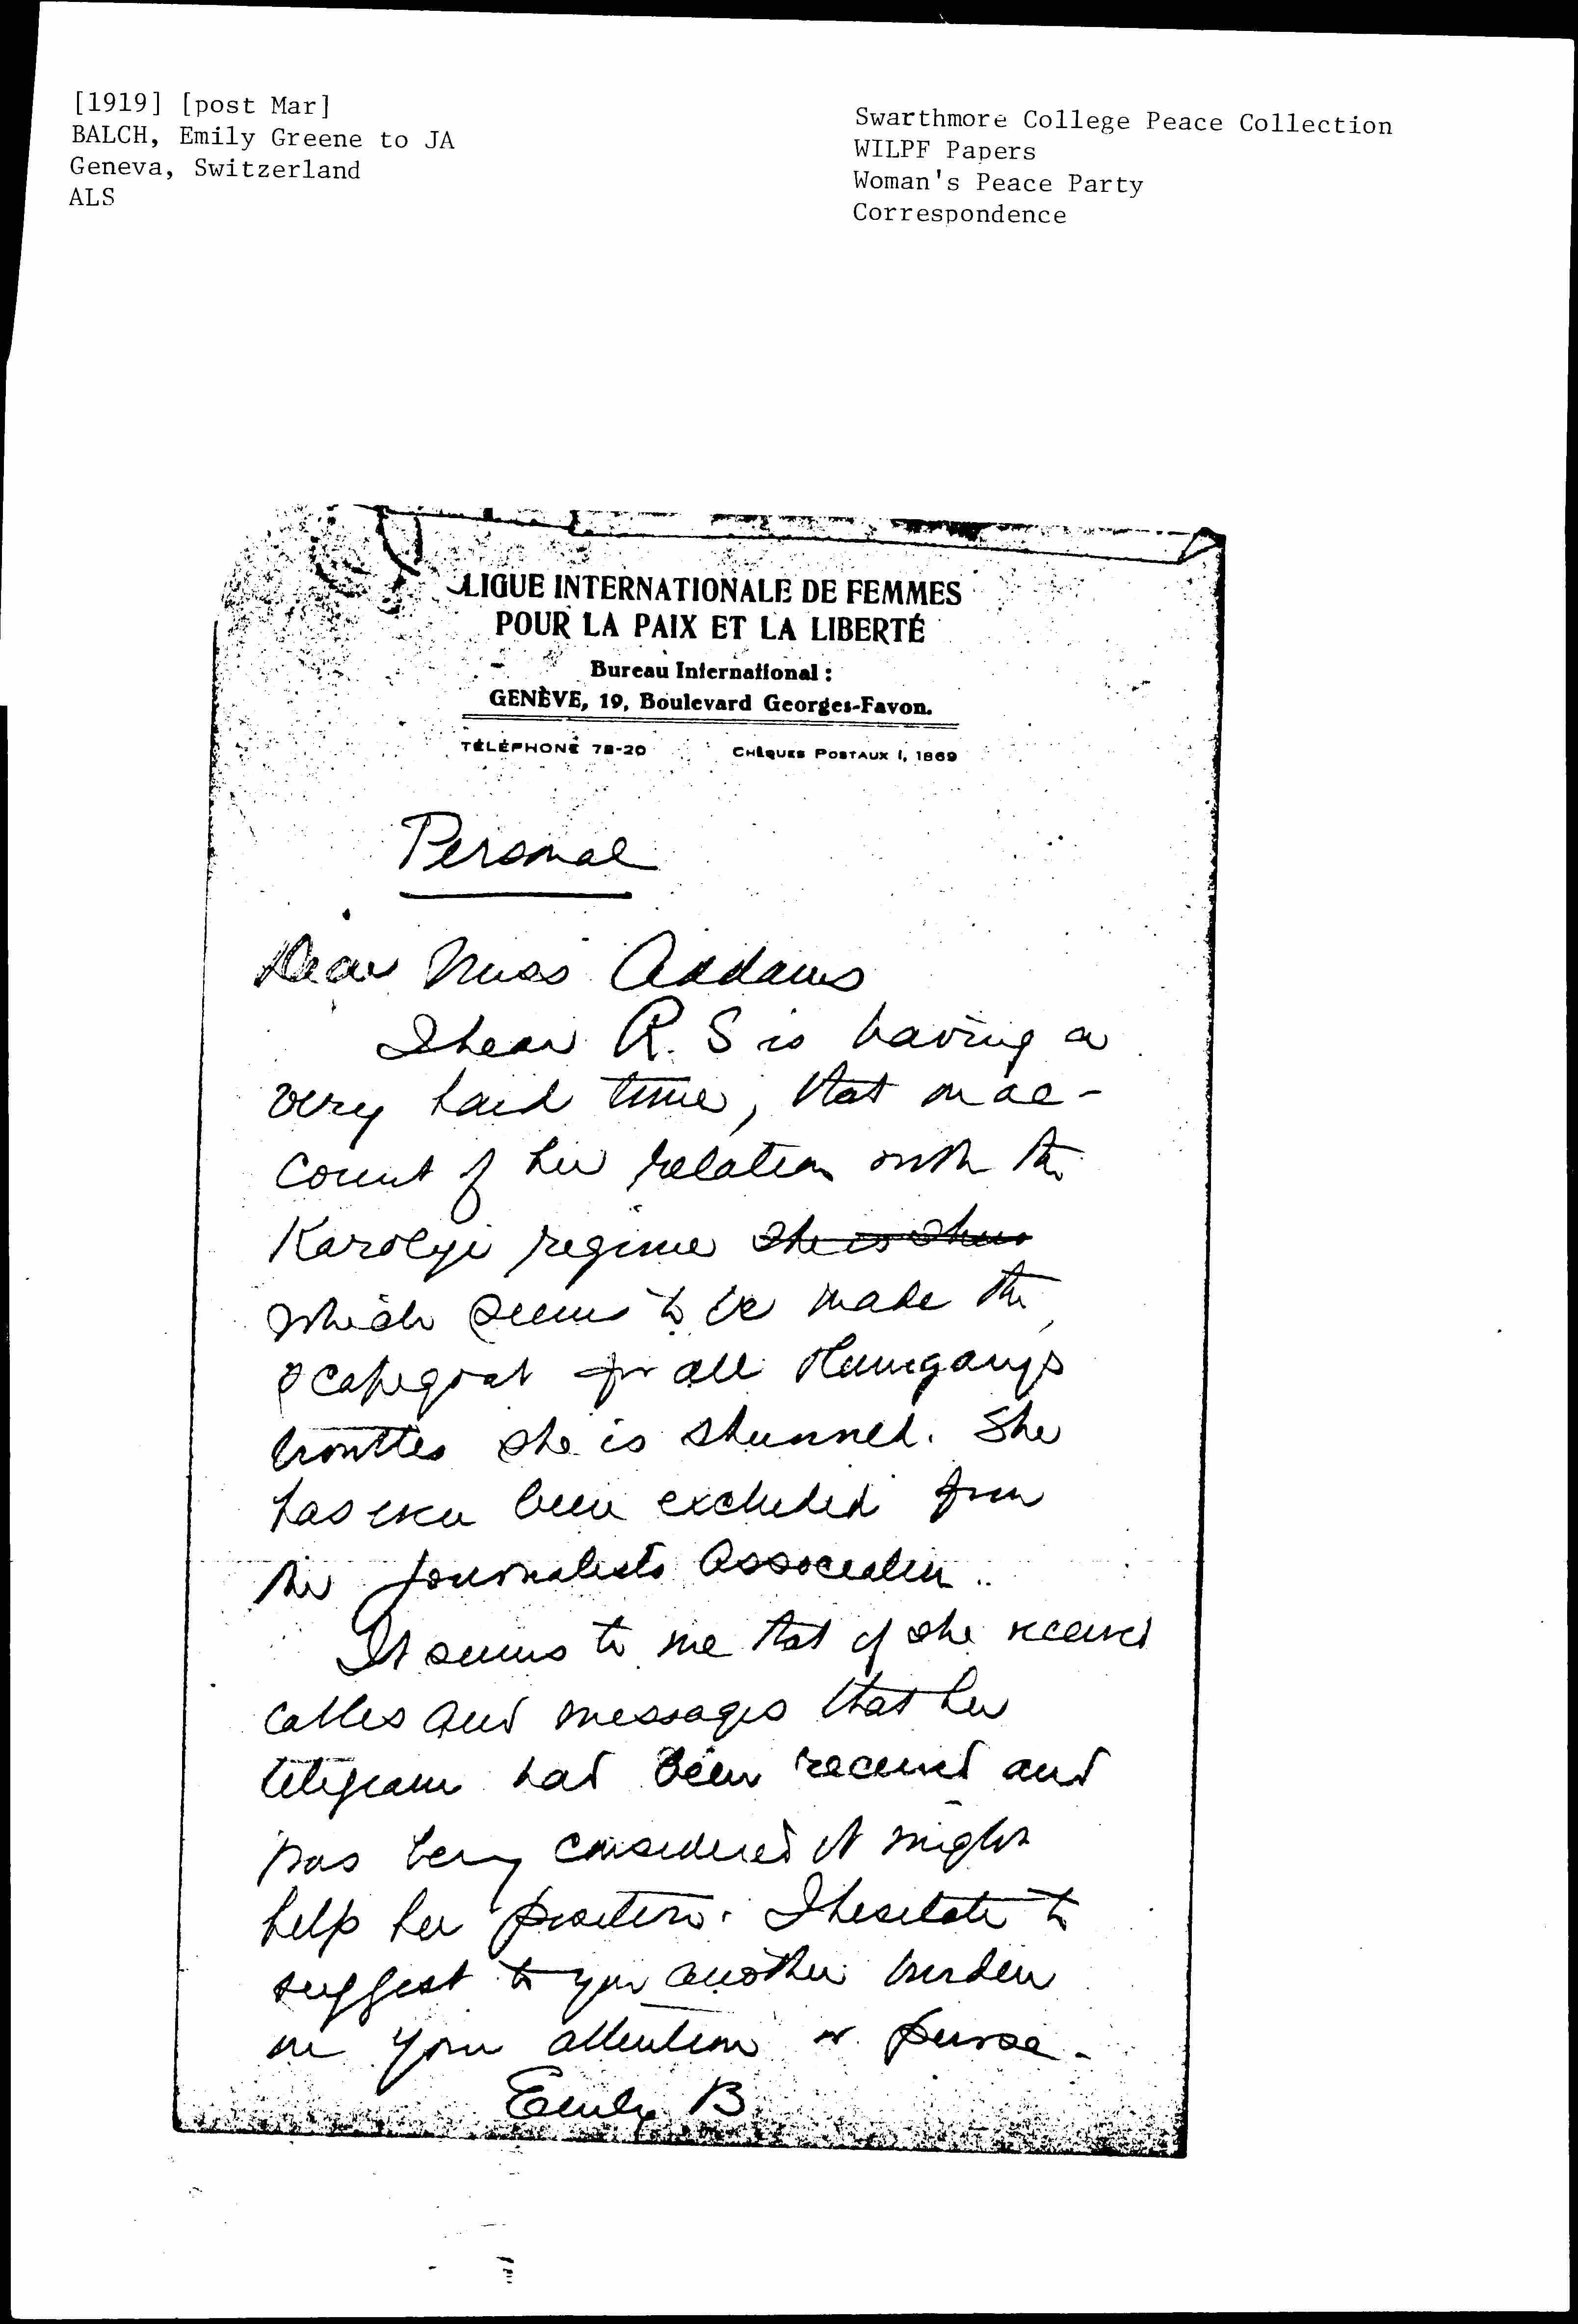 [1919] [post Mar]
BALCH, Emily Greene to JA
Geneva, Switzerland
ALS
Swarthmore College Peace Collection
WILPF Papers
Woman's Peace Party
Correspondence
LIGUE INTERNATIONALE DE FEMMES
POUR LA PAIX ET LA LIBERTÉ
Bureau International :
GENÈVE, 19, Boulevard Georges-Favon.
TÉLÉPHONE 78-20 CHÈQUES POSTAUX I, 1869
Personal
Dear Miss Addams
I hear R. S is having a
very hard time, that on ac-
count of her relation with the
Karolyi regime she is shun
which seems to be made the
scapegoat for all Hungarys
troubles she is shunned. She
has even been excluded from
the journalists Association.
It seems to me that if she received
cables and messages that her
telegram had been received and
was being considered it might
help her position. I hesitate to
suggest to you another burden
on your attention or purse.
Emily B